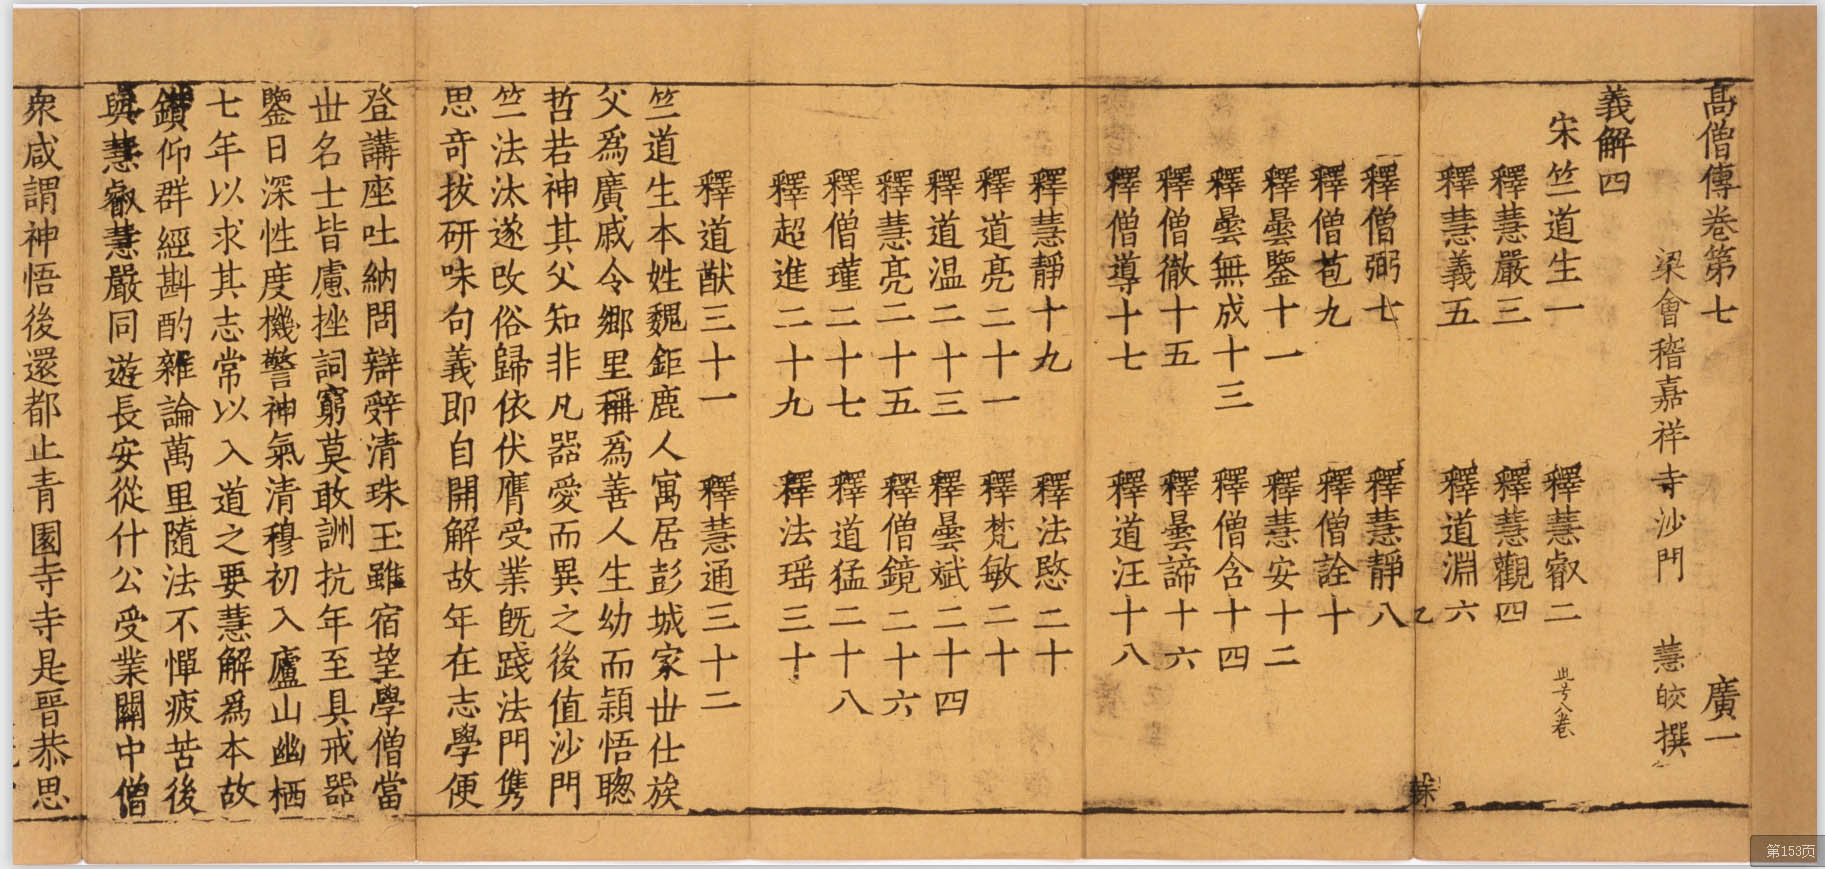 高僧傳卷第七
廣一
梁會稽嘉祥寺沙門 慧皎撰
義解四
宋竺道生一 釋慧叡二
此号八卷
釋慧嚴三 釋慧觀四
釋慧義五 釋道淵六
釋僧弼七 釋慧靜八
釋僧苞九 釋僧詮十
釋曇鑒十一 釋慧安十二
釋曇無成十三 釋僧含十四
釋僧徹十五 釋曇諦十六
釋僧導十七 釋道汪十八
釋慧靜十九 釋法愍二十
釋道亮二十一 釋梵敏二十
釋道温二十三 釋曇斌二十四
釋慧亮二十五 釋僧鏡二十六
釋僧瑾二十七 釋道猛二十八
釋超進二十九 釋法瑶三十
釋道猷三十一 釋慧通三十二
竺道生本姓魏鉅鹿人寓居彭城家世仕族
父爲廣戚令鄉里稱爲善人生幼而穎悟聦
哲若神其父知非凡器愛而異之後值沙門
竺法汰遂改俗歸依伏膺受業既踐法門雋
思奇拔研味句義即自開解故年在志學便
登講座吐納問辯辤清珠玉雖宿望學僧當
世名士皆慮挫詞窮莫敢詶抗年至具戒器
鑒日深性度機警神氣清穆初入廬山幽栖
七年以求其志常以入道之要慧解爲本故
鑽仰群經斟酌雜論萬里隨法不憚疲苦後
與慧叡慧嚴同遊長安從什公受業關中僧
衆咸謂神悟後還都止青園寺寺是晉恭思
第153页